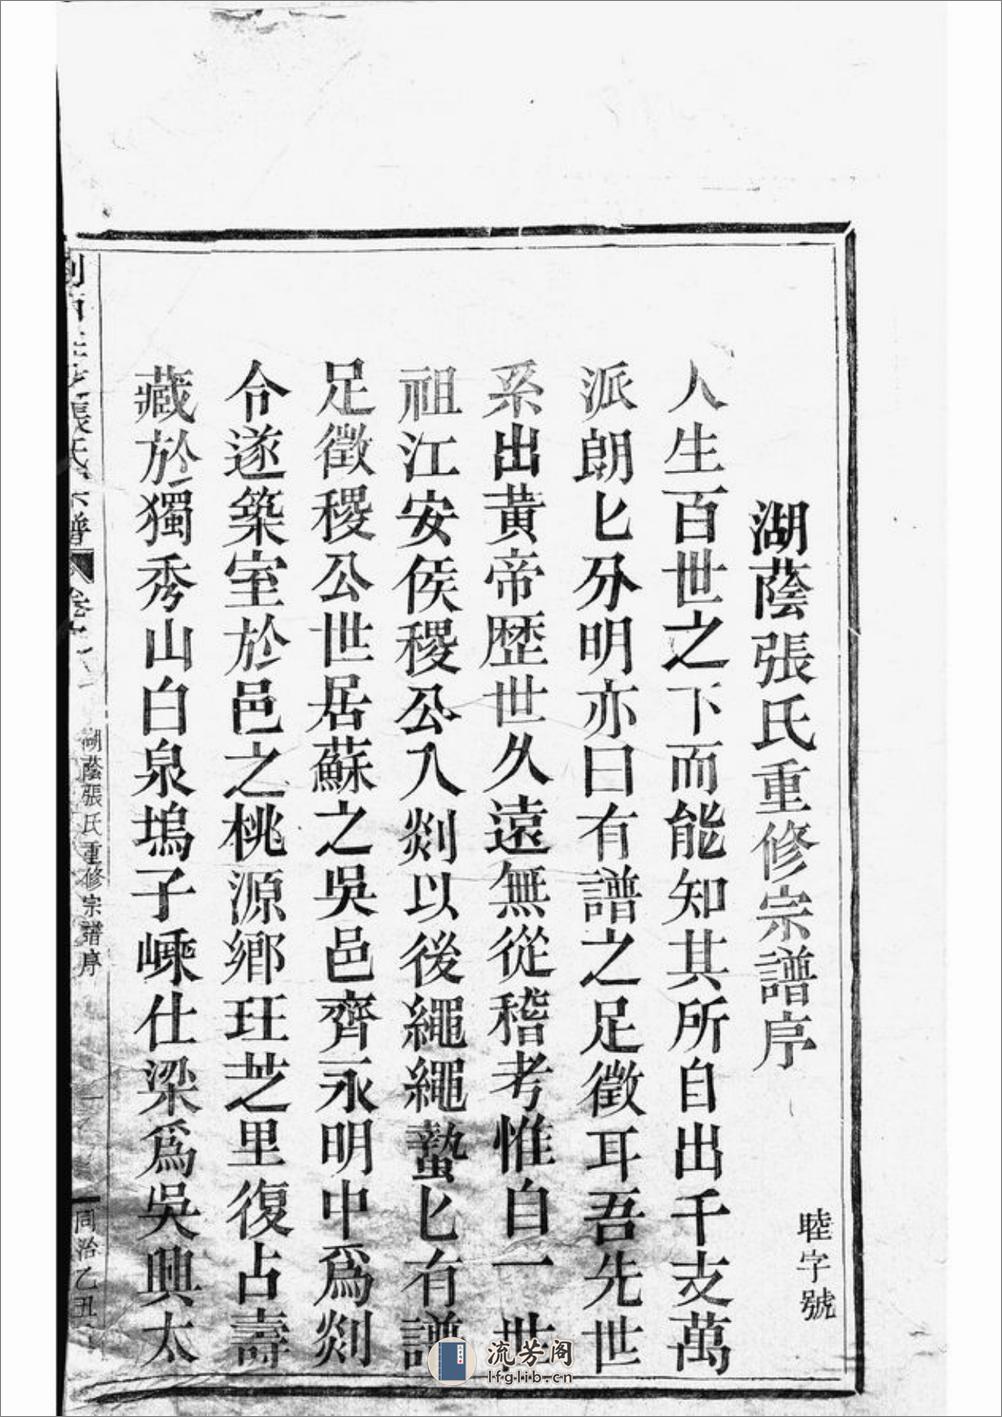 睦字號
湖蔭張氏重修宗譜序
人生百世之下而能知其所自出千支萬
派朗匕分明亦曰有譜之足徵耳吾先世
系出黃帝歴世久遠無從稽考惟自一世
祖江安侯稷公入剡以後繩繩蟄匕有譜
足徵稷公世居蘇之吳邑齊永明中爲剡
令遂築室於邑之桃源鄉玨芝里復占壽
藏於獨秀山白泉塢子嵊仕梁爲吳興太
張氏宗譜
湖蔭張氏重修宗譜序
同治乙丑
流芳阁
lfglib.cn